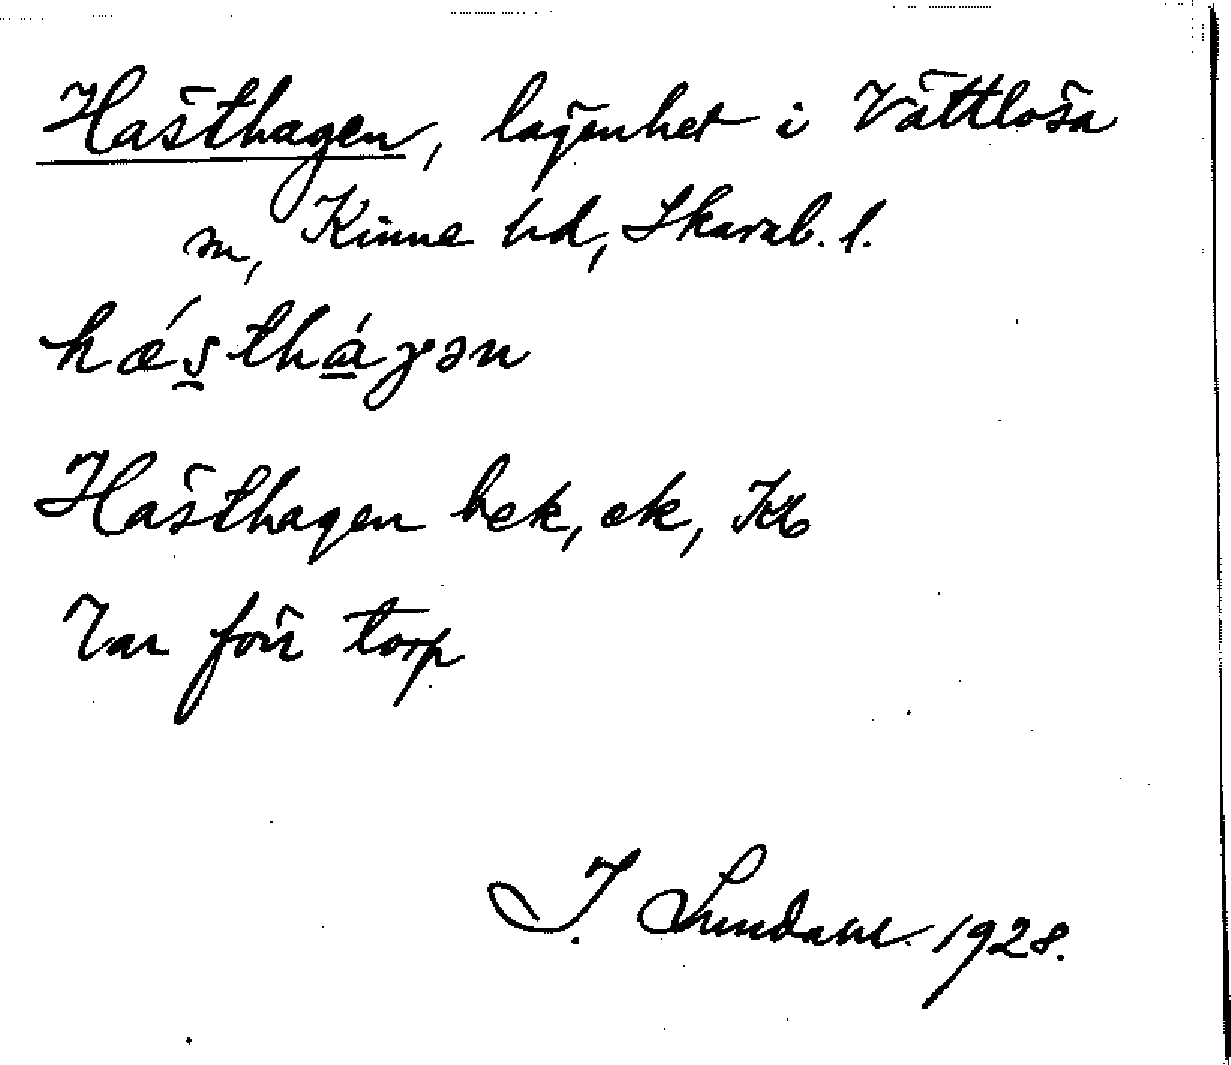 Hästhagen, lägenhet i Vättlösa
sn, Kinne hd, Skarab. l.
hǽsthágən
Hästhagen bek, ek, JK
Var förr torp
I. Lundahl 1928.